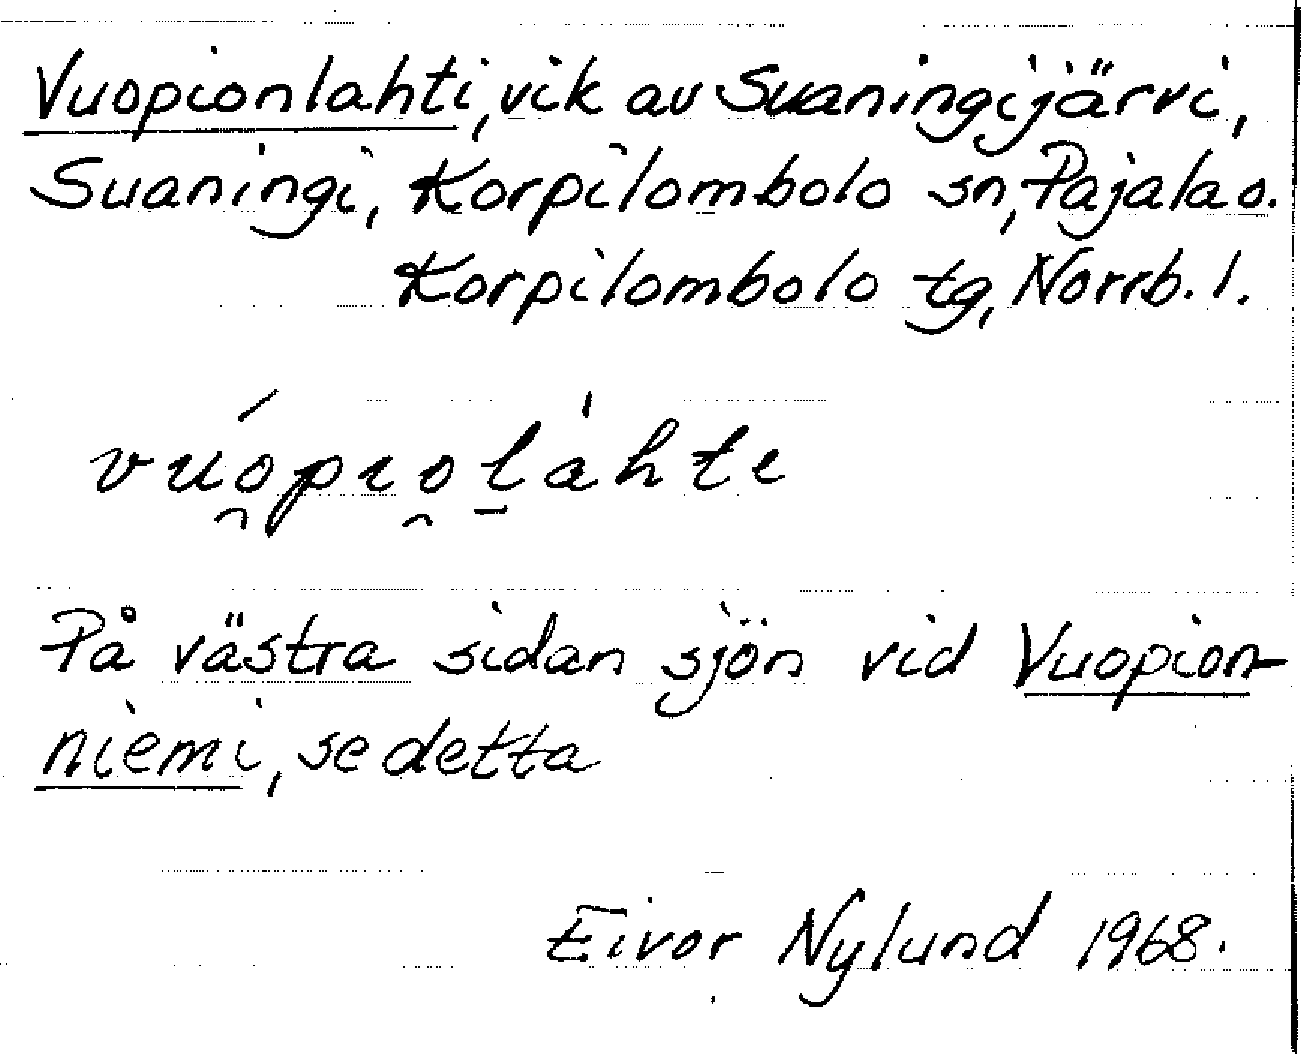 Vuopionlahti, vik av Suaningijärvi,
Suaningi, Korpilombolo sn, Pajala o.
Korpilombolo tg, Norrb. l.
vúo̯pıo̯l̠ȧhte
På västra sidan sjön vid Vuopion-
niemi, se detta
Eivor Nylund 1968.